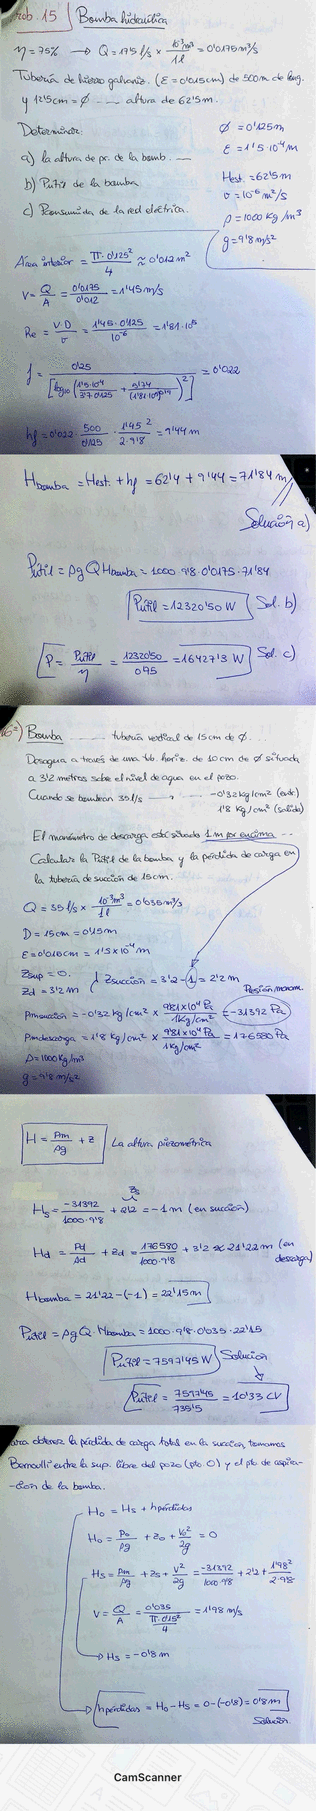 Prob. 15 Bomba hidráulica
η = 75% → Q = 17'5 l/s × 10⁻³m³/1l = 0'0175 m³/s
Tubería de hierro galvaniz. (ε = 0'015cm) de 500m de long.
y 12'5cm = Ø ... altura de 62'5m.
Determinar:
a) la altura de pr. de la bomb. —
b) Pútil de la bomba
c) Pconsumida de la red eléctrica.
Ø = 0'125m
ε = 1'5·10⁻⁴m
Hest. = 62'5m
υ = 10⁻⁶ m²/s
ρ = 1000 kg/m³
g = 9'8 m/s²
Área interior = π·0'125²/4 ≈ 0'012 m²
V = Q/A = 0'0175/0'012 = 1'45 m/s
Re = V·D/υ = 1'45·0'125/10⁻⁶ = 1'81·10⁵
f = 0'25/[log10(1'5·10⁻⁴/3'7·0'125 + 5'74/(1'81·10⁵)^0'9)²] = 0'022
hf = 0'022 · 500/0'125 · 1'45²/2·9'8 = 9'44 m
Hbomba = Hest. + hf = 62'4 + 9'44 = 71'84 m
Solución a)
Pútil = ρgQHbomba = 1000·9'8·0'0175·71'84
Pútil = 12320'50 W Sol. b)
P = Pútil/η = 12320'50/0'75 = 16427'3 W Sol. c)
16º) Bomba ... tubería vertical de 15cm de Ø.
Desagua a través de una tub. horiz. de 10cm de Ø situada
a 3'2 metros sobre el nivel de agua en el pozo.
Cuando se bombean 35 l/s → -0'32 kg/cm² (entr.)
1'8 kg/cm² (salida)
El manómetro de descarga está situado 1m por encima ...
Calcular la Pútil de la bomba y la pérdida de carga en
la tubería de succión de 15cm.
Q = 35 l/s × 10⁻³m³/1l = 0'035 m³/s
D = 15cm = 0'15m
ε = 0'015cm = 1'5×10⁻⁴m
Zsup = 0.
Zd = 3'2m
Zsucción = 3'2 - 1 = 2'2m
Presión manom.
Pmsucción = -0'32 kg/cm² × 9'81×10⁴ Pa/1 kg/cm² = -31392 Pa
Pmdescarga = 1'8 kg/cm² × 9'81×10⁴ Pa/1 kg/cm² = 176580 Pa
ρ = 1000 kg/m³
g = 9'8 m/s²
H = Pm/ρg + z La altura piezométrica
Zs
Hs = -31392/1000·9'8 + 2'2 = -1m (en succión)
Hd = Pd/ρd + zd = 176580/1000·9'8 + 3'2 ≈ 21'22m (en descarga)
Hbomba = 21'22 - (-1) = 22'15m
Pútil = ρgQ·Hbomba = 1000·9'8·0'035·22'15
Pútil = 7597'45 W Solución
Pútil = 7597'45/735'5 = 10'33 CV
Para obtener la pérdida de carga total en la succión tomamos
Bernoulli entre la sup. libre del pozo (pto. O) y el pto. de aspira-
-ción de la bomba.
H₀ = Hs + hpérdidas
H₀ = P₀/ρg + z₀ + V₀²/2g = 0
Hs = Pm/ρg + zs + V²/2g = -31392/1000·9'8 + 2'2 + 1'98²/2·9'8
V = Q/A = 0'035/(π·0'15²/4) = 1'98 m/s
Hs = -0'8 m
hpérdidas = H₀ - Hs = 0 - (-0'8) = 0'8 m
Solución.
CamScanner